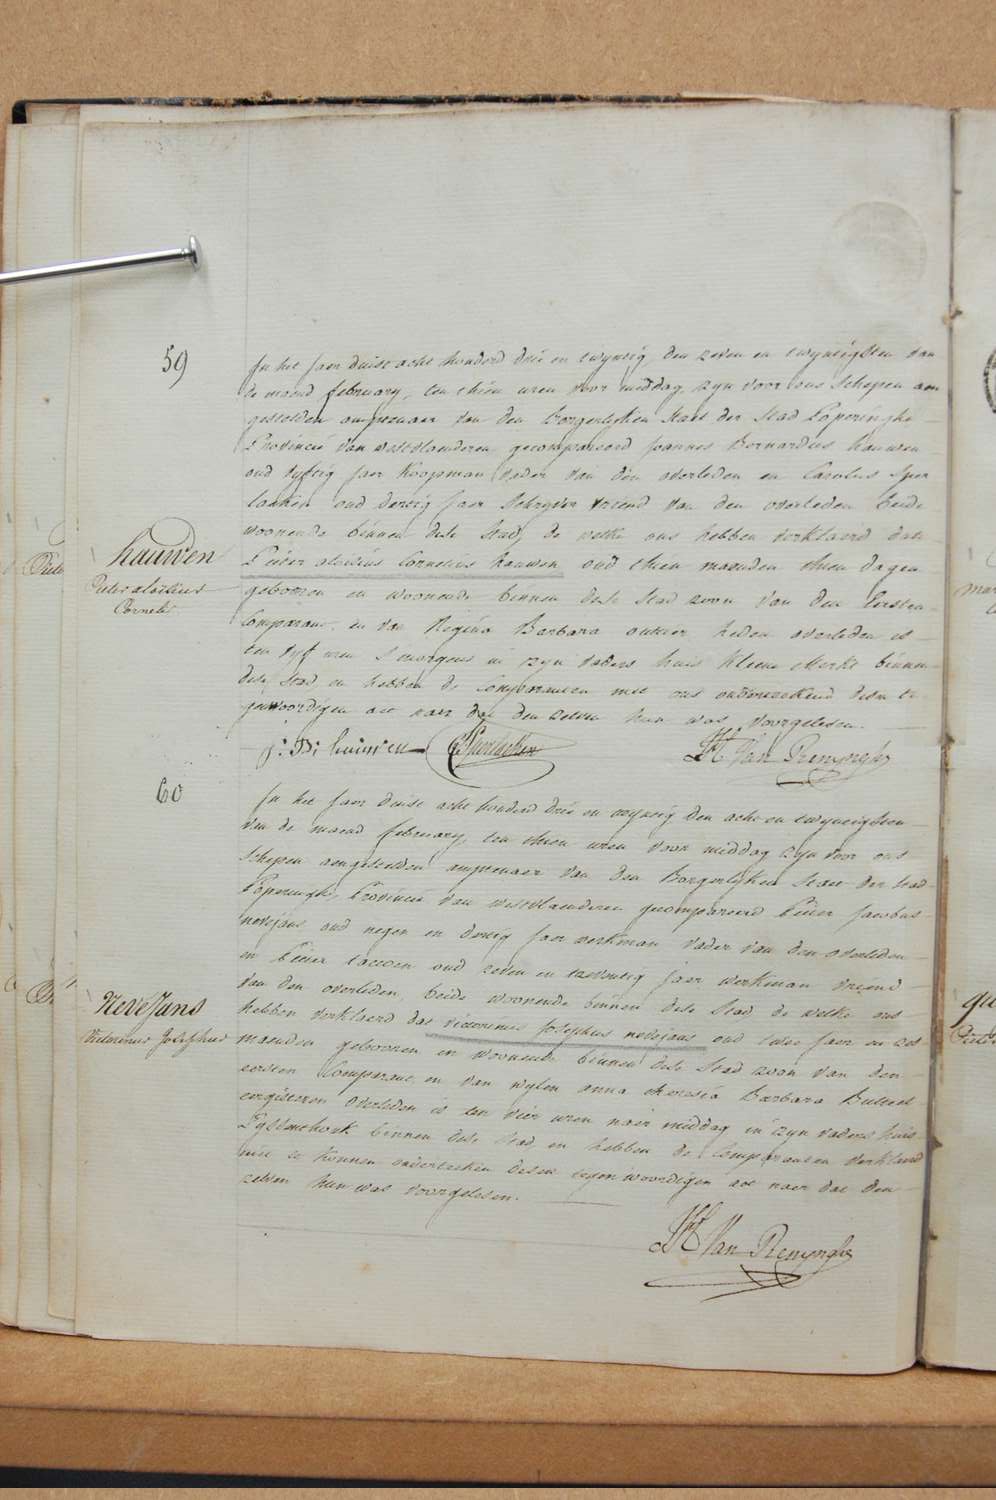 59
In het jaer duist acht honderd drie en twyntig den zeven en twyntigsten van
de maend february, ten thien uren voor middag, zyn voor ons schepen aen
gestelden ampenaer van den borgerlyken staet der stad Poperinghe
Provincie van westvlanderen gecompareerd Joannes Bernardus hauwen
oud vyftig jaer koopman vader van den overleden en Carolus Sper
laeken oud dertig jaer schryver vriend van den overleden beide
woonende binnen dese stad, de welke ons hebben verklaerd dat
hauwen
Pieter aloisius
Cornelis
Pieter aloisius Cornelius hauwen oud thien maenden thien dagen
geboren en woonende binnen dese stad zoon van den eersten
Comparant, en van Regina Barbara heden overleden is
ten vyf uren s'morgens in zyn vaders huis kleene Merkt binnen
dese stad en hebben de Comparanten met ons onderteekend desen te
genwoordigen act naer dat den zelven hun was voorgelesen.
J: B: hauwen C Sperlaeken Van Renynghe
60
In het jaer duist acht honderd drie en twyntig den acht en twyntigsten
van de maend february, ten thien uren voor middag zyn voor ons
schepen aengestelden ampenaer van den Borgerlyken staet der stad
Poperinghe, Provincie van westvlaenderen gecompareerd Pieter Jacobus
nevejans oud negen en dertig jaer werkman vader van den overleden
en Pieter oud zeven en jaer werkman vriend
van den overleden, beide woonende binnen dese stad de welke ons
Nevejans
Victorinus Josephus
hebben verklaerd dat victorinus Josephus nevejans oud twee jaer en zes
maenden geboren en woonende binnen dese stad zoon van den
eersten Comparant, en van wylen anna theresia Barbara
overleden is ten vier uren naer middag in zyn vaders huis
binnen dese stad, en hebben de Comparanten verklaerd
niet te konnen onderteeken desen tegenwoordigen act naer dat den
zelven hun was voorgelesen.
Van Renynghe